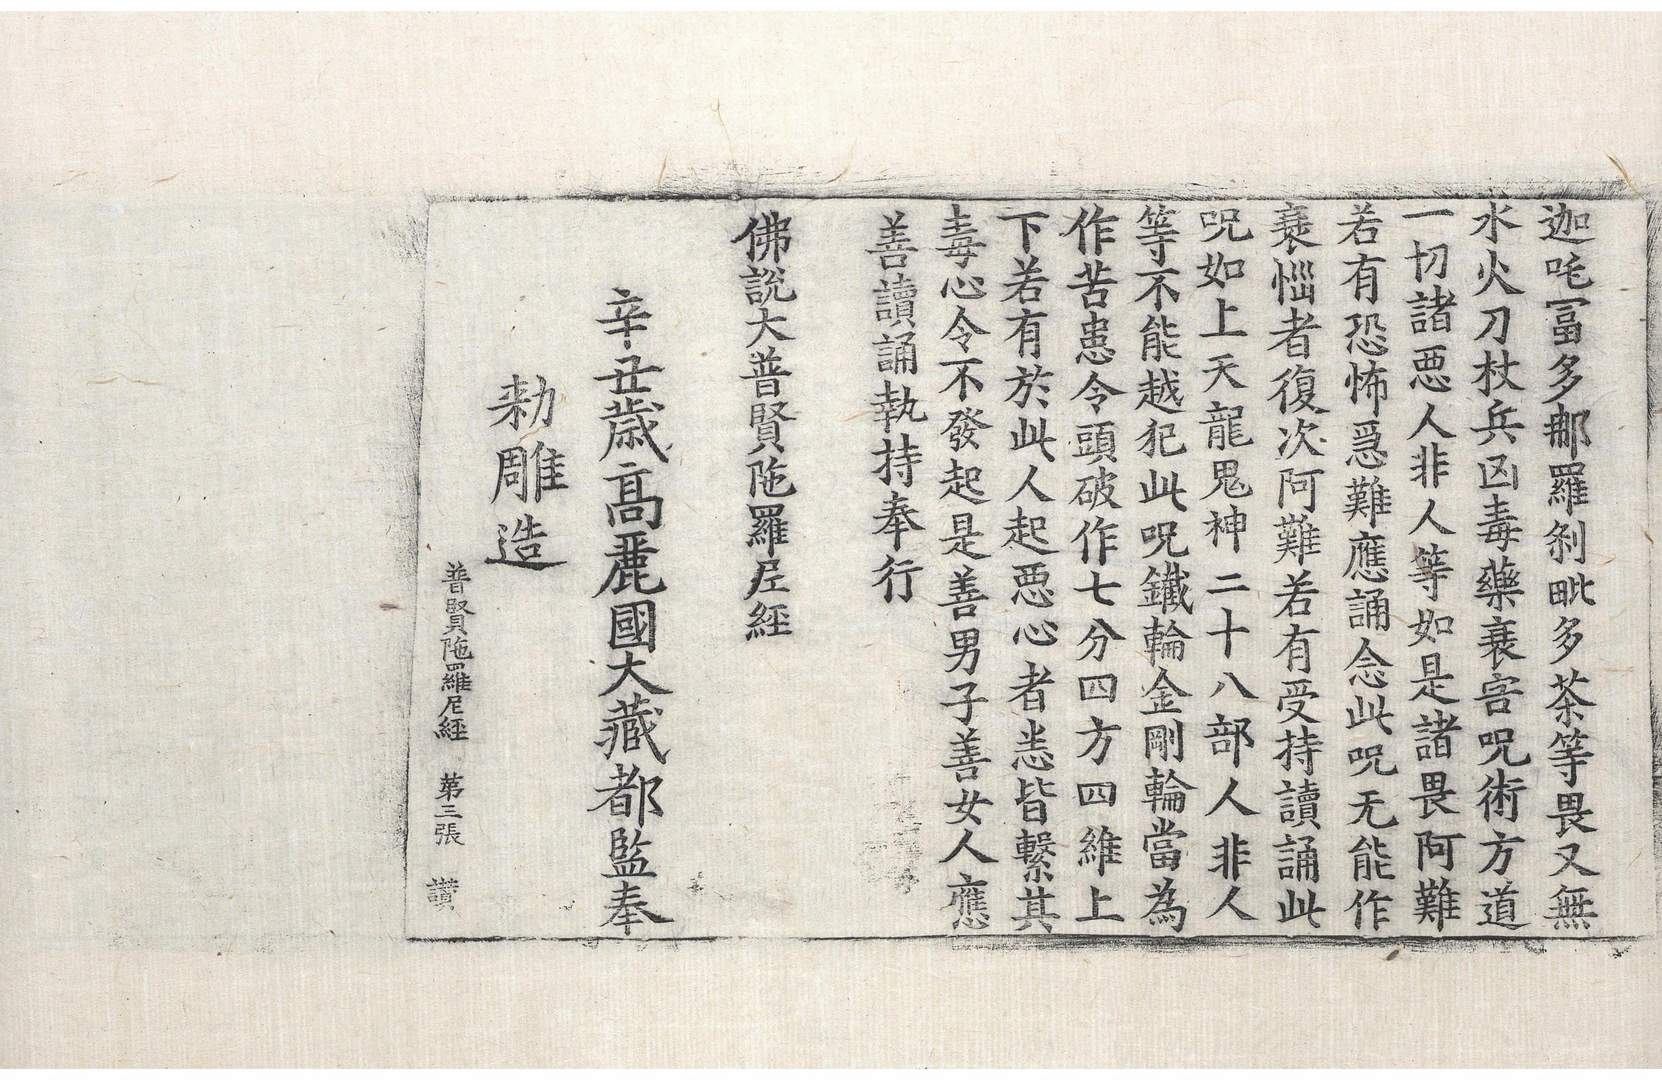 迦吒冨多那羅剎毗多茶等畏又無
水火刀杖兵凶毒藥衰害呪術方道
一切諸悪人非人等如是諸畏阿難
若有恐怖㤅難應誦念此呪无能作
衰惱者復次阿難若有受持讀誦此
呪如上天龍鬼神二十八部人非人
等不能越犯此呪鐵輪金剛輪當為
作苦患令頭破作七分四方四維上
下若有於此人起悪心者悉皆繫其
毒心令不發起是善男子善女人應
善讀誦執持奉行
佛說大普賢陁羅尼經
辛丑歳高麗國大藏都監奉
勑雕造
普賢陁羅尼經　第三張　讃